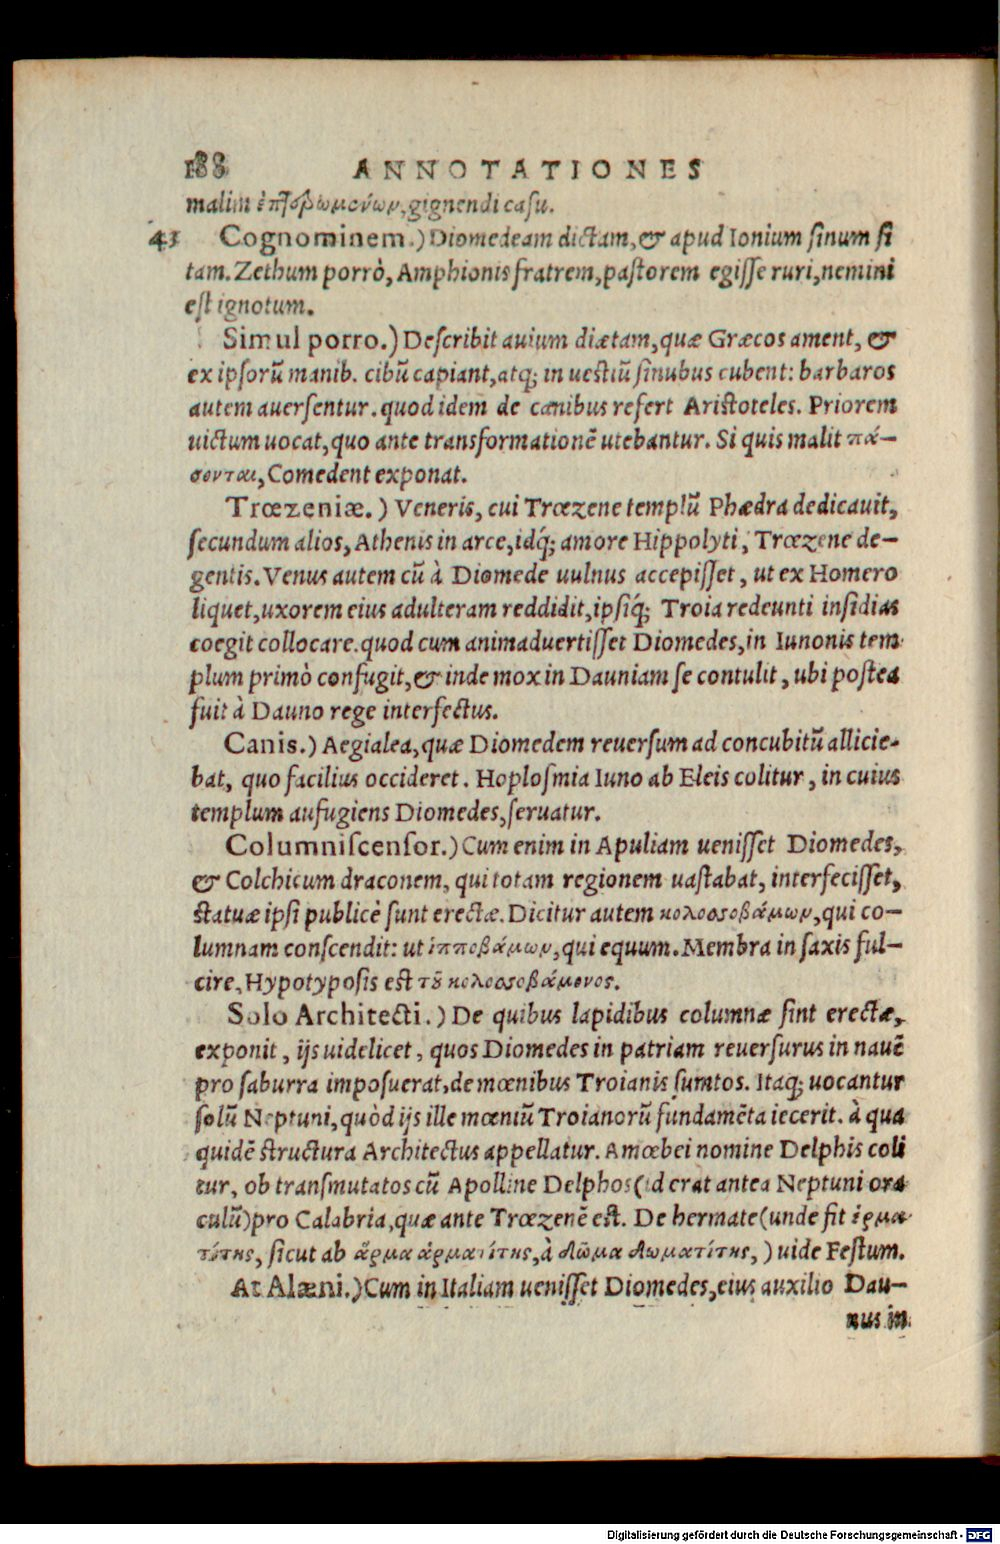 188 ANNOTATIONES
malim gignendi casu.
43 Cognominem.) Diomedeam dictam, & apud Ionium sinum si
tam. Zethum porrò, Amphionis fratrem, pastorem egisse ruri, nemini
est ignotum.
Simul porro.) Describit auium diætam, quæ Græcos ament, &
ex ipsorũ manib. cibũ capiant, atq; in uestiũ sinubus cubent: barbaros
autem auersentur. quod idem de canibus refert Aristoteles. Priorem
uictum uocat, quo ante transformationẽ utebantur. Si quis malit πά-
σονται, Comedent exponat.
Trœzeniæ.) Veneris, cui Trœzene templũ Phædra dedicauit,
secundum alios, Athenis in arce, idq́; amore Hippolyti, Trœzene de-
gentis. Venus autem cũ à Diomede uulnus accepisset, ut ex Homero
liquet, uxorem eius adulteram reddidit, ipsiq́; Troia redeunti insidias
coegit collocare. quod cum animaduertisset Diomedes, in Iunonis tem
plum primò confugit, & inde mox in Dauniam se contulit, ubi postea
fuit à Dauno rege interfectus.
Canis.) Aegialea, quæ Diomedem reuersum ad concubitũ allicie-
bat, quo facilius occideret. Hoplosmia Iuno ab Eleis colitur, in cuius
templum aufugiens Diomedes, seruatur.
Columniscensor.) Cum enim in Apuliam uenisset Diomedes,
& Colchicum draconem, qui totam regionem uastabat, interfecisset,
statuæ ipsi publicè sunt erectæ. Dicitur autem κολοσσοβάμων, qui co-
lumnam conscendit: ut ἱπποβάμων, qui equum. Membra in saxis ful-
cire, Hypotyposis est τȣ͂ κολοσσοβάμονος.
Solo Architecti.) De quibus lapidibus columnæ sint erectæ,
exponit, ijs uidelicet, quos Diomedes in patriam reuersurus in nauẽ
pro saburra imposuerat, de mœnibus Troianis sumtos. Itaq; uocantur
solũ Neptuni, quòd ijs ille mœniũ Troianorũ fundamẽta iecerit. à qua
quidẽ structura Architectus appellatur. Amœbei nomine Delphis coli
tur, ob transmutatos cũ Apolline Delphos (id erat antea Neptuni ora
culũ) pro Calabria, quæ ante Trœzenẽ est. De hermate (unde fit ἑρμα-
τίτης, sicut ab ἅρμα ἁρματίτης, à δῶμα δωματίτης,) uide Festum.
At Alæni.) Cum in Italiam uenisset Diomedes, eius auxilio Dau-
nus in
Digitalisierung gefördert durch die Deutsche Forschungsgemeinschaft - DFG